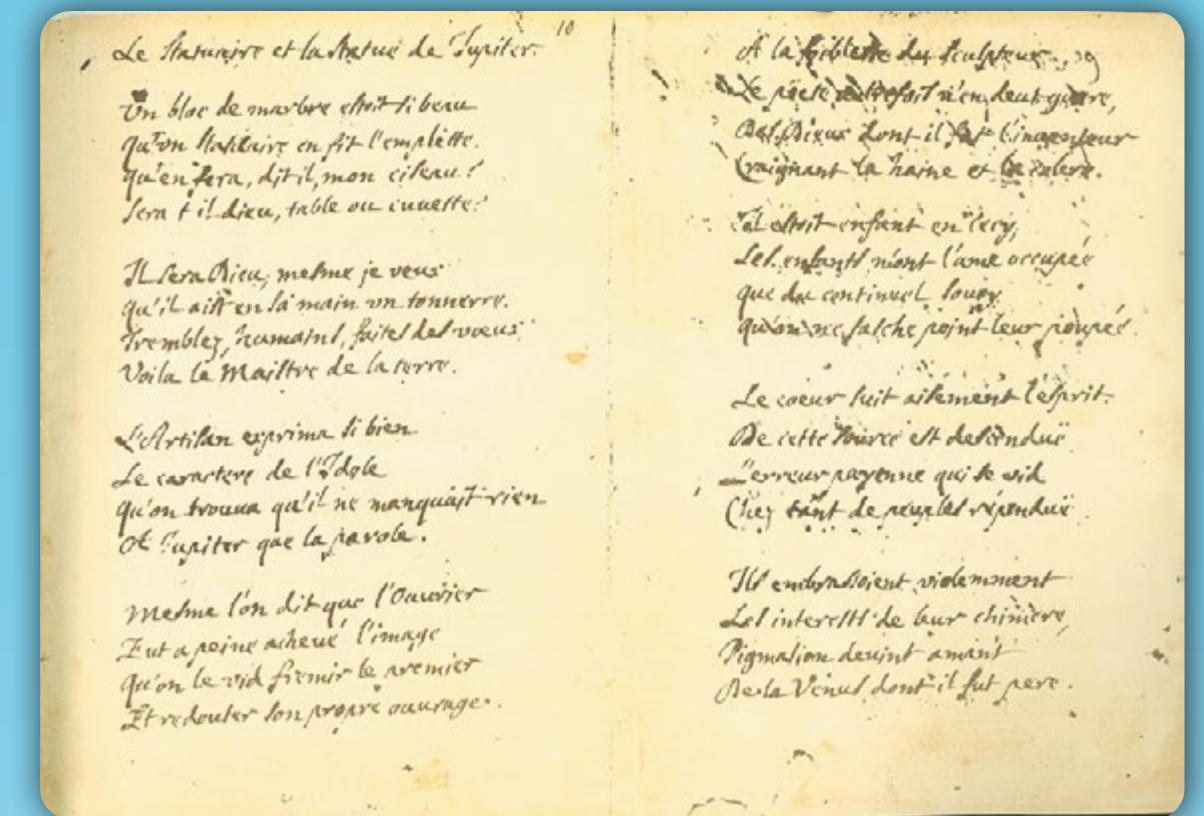 10
Le Statuaire et la Statue de Jupiter.
Un bloc de marbre estoit si beau
Qu'un Statüaire en fit l'emplette.
Qu'en fera, dit il, mon ciseau?
Sera t il dieu, table ou cuvette?
Il sera Dieu; mesme je veux
Qu'il ait en sa main un tonnerre.
Tremblez, humains, faites des vœux
Voila le Maistre de la terre.
L'Artisan exprima si bien
Le caractere de l'Idole
Qu'on trouva qu'il ne manquoit rien
A Jupiter que la parole.
Mesme l'on dit que l'Ouvrier
Eut a peine achevé l'image
Qu'on le vid fremir le premier
Et redouter son propre ouvrage.
A la foiblesse du Sculpteur
Le poëte autrefois n'en deut guere,
Des Dieux dont il fut l'inventeur
Craignant la haine et la colere.
Il estoit enfant en cecy,
Les enfants n'ont l'ame occupée
que du continuel soucy
qu'on ne fasche point leur poupée.
Le coeur suit aisement l'esprit.
De cette source est descenduë
L'erreur payenne qui se vid
Chez tant de peuples répenduë
Ils embrassoient violemment
Les interests de leur chimere,
Pigmalion devint amant
De la Venus dont il fut pere.